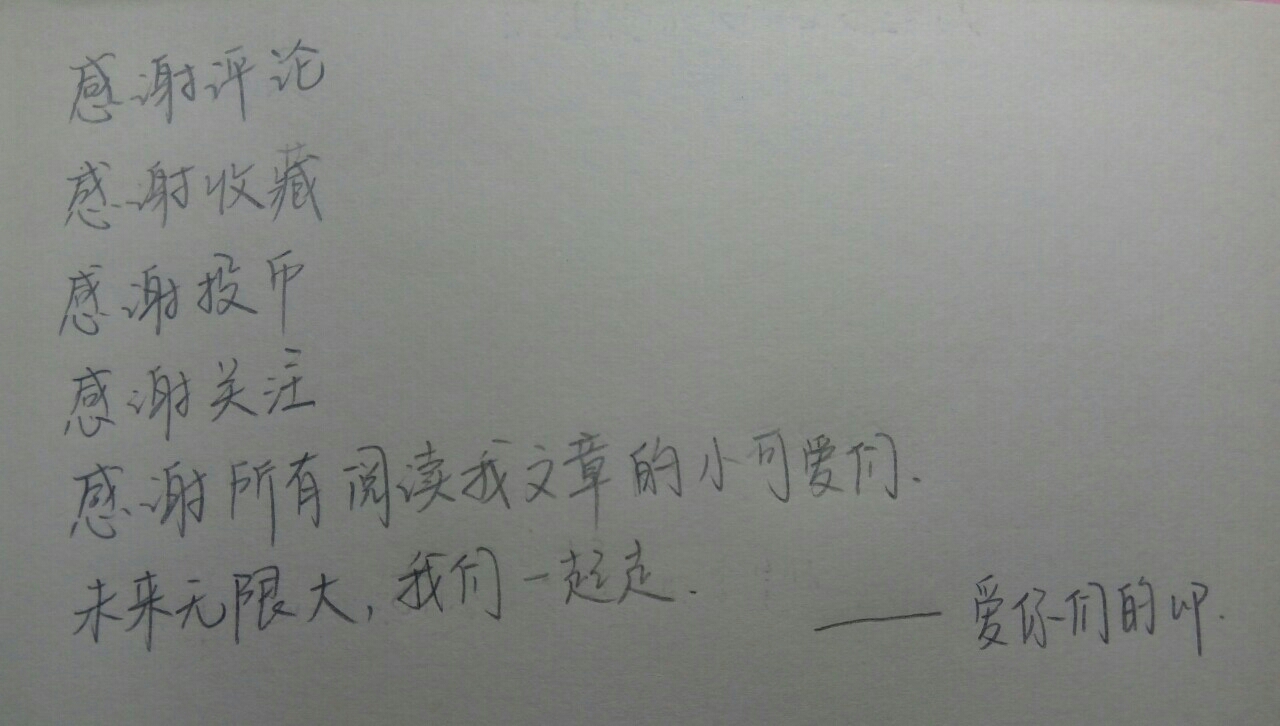 感谢评论
感谢收藏
感谢投币
感谢关注
感谢所有阅读我文章的小可爱们.
未来无限大,我们一起走.
——爱你们的